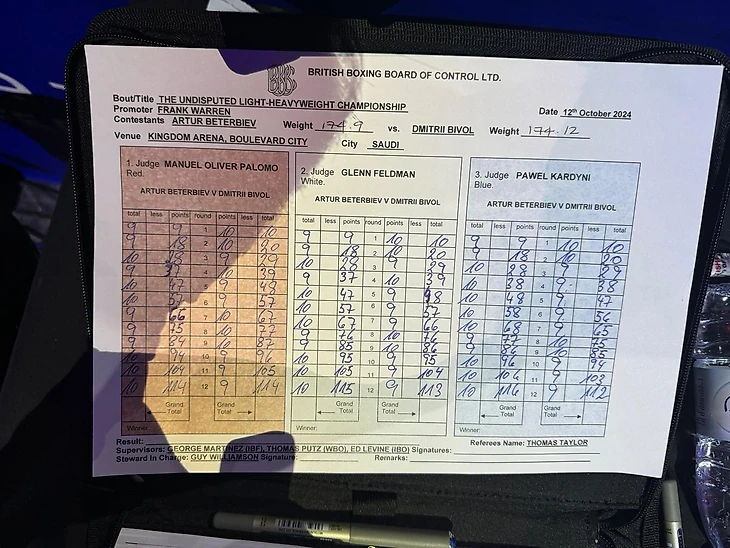 BRITISH BOXING BOARD OF CONTROL LTD.
Bout/Title THE UNDISPUTED LIGHT-HEAVYWEIGHT CHAMPIONSHIP
Promoter FRANK WARREN Date 12th October 2024
Contestants ARTUR BETERBIEV Weight 174.9 vs. DMITRII BIVOL Weight 174.12
Venue KINGDOM ARENA, BOULEVARD CITY City SAUDI
1. Judge MANUEL OLIVER PALOMO
Red.
ARTUR BETERBIEV V DMITRII BIVOL
total less points round points less total
9 9 1 10 10
9 18 2 10 20
10 28 3 9 29
9 37 4 10 39
10 47 5 9 48
10 57 6 9 57
9 66 7 10 67
9 75 8 10 77
9 84 9 10 87
10 94 10 9 96
10 104 11 9 105
10 114 12 9 114
Grand Total
Grand Total
Winner:
2. Judge GLENN FELDMAN
White.
ARTUR BETERBIEV V DMITRII BIVOL
total less points round points less total
9 9 1 10 10
9 18 2 10 20
10 28 3 9 29
9 37 4 10 39
10 47 5 9 48
10 57 6 9 57
10 67 7 9 66
9 76 8 10 76
9 85 9 10 86
10 95 10 9 95
10 105 11 9 104
10 115 12 9 113
Grand Total
Grand Total
Winner:
3. Judge PAWEL KARDYNI
Blue.
ARTUR BETERBIEV V DMITRII BIVOL
total less points round points less total
9 9 1 10 10
9 18 2 10 20
10 28 3 9 29
10 38 4 9 38
10 48 5 9 47
10 58 6 9 56
10 68 7 9 65
9 77 8 10 75
9 86 9 10 85
10 96 10 9 94
10 106 11 9 103
10 116 12 9 112
Grand Total
Grand Total
Winner:
Result: Referees Name: THOMAS TAYLOR
Supervisors: GEORGE MARTINEZ (IBF), THOMAS PUTZ (WBO), ED LEVINE (IBO) Signatures:
Steward In Charge: GUY WILLIAMSON Signature: Remarks: